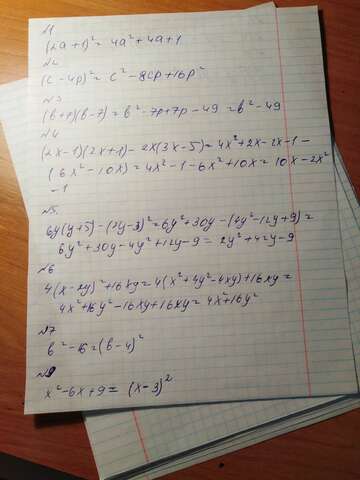 №1
(2a+1)² = 4a² + 4a + 1
№2
(c - 4p)² = c² - 8cp + 16p²
№3
(b+7)(b-7) = b² - 7b + 7b - 49 = b² - 49
№4
(2x-1)(2x+1) - 2x(3x-5) = 4x² + 2x - 2x - 1 -
- (6x² - 10x) = 4x² - 1 - 6x² + 10x = 10x - 2x²
- 1
№5.
6y(y+5) - (2y-3)² = 6y² + 30y - (4y² - 12y + 9) =
6y² + 30y - 4y² + 12y - 9 = 2y² + 42y - 9
№6
4(x-2y)² + 16xy = 4(x² + 4y² - 4xy) + 16xy =
4x² + 16y² - 16xy + 16xy = 4x² + 16y²
№7
b² - 16 = (b-4)²
№8
x² - 6x + 9 = (x-3)²